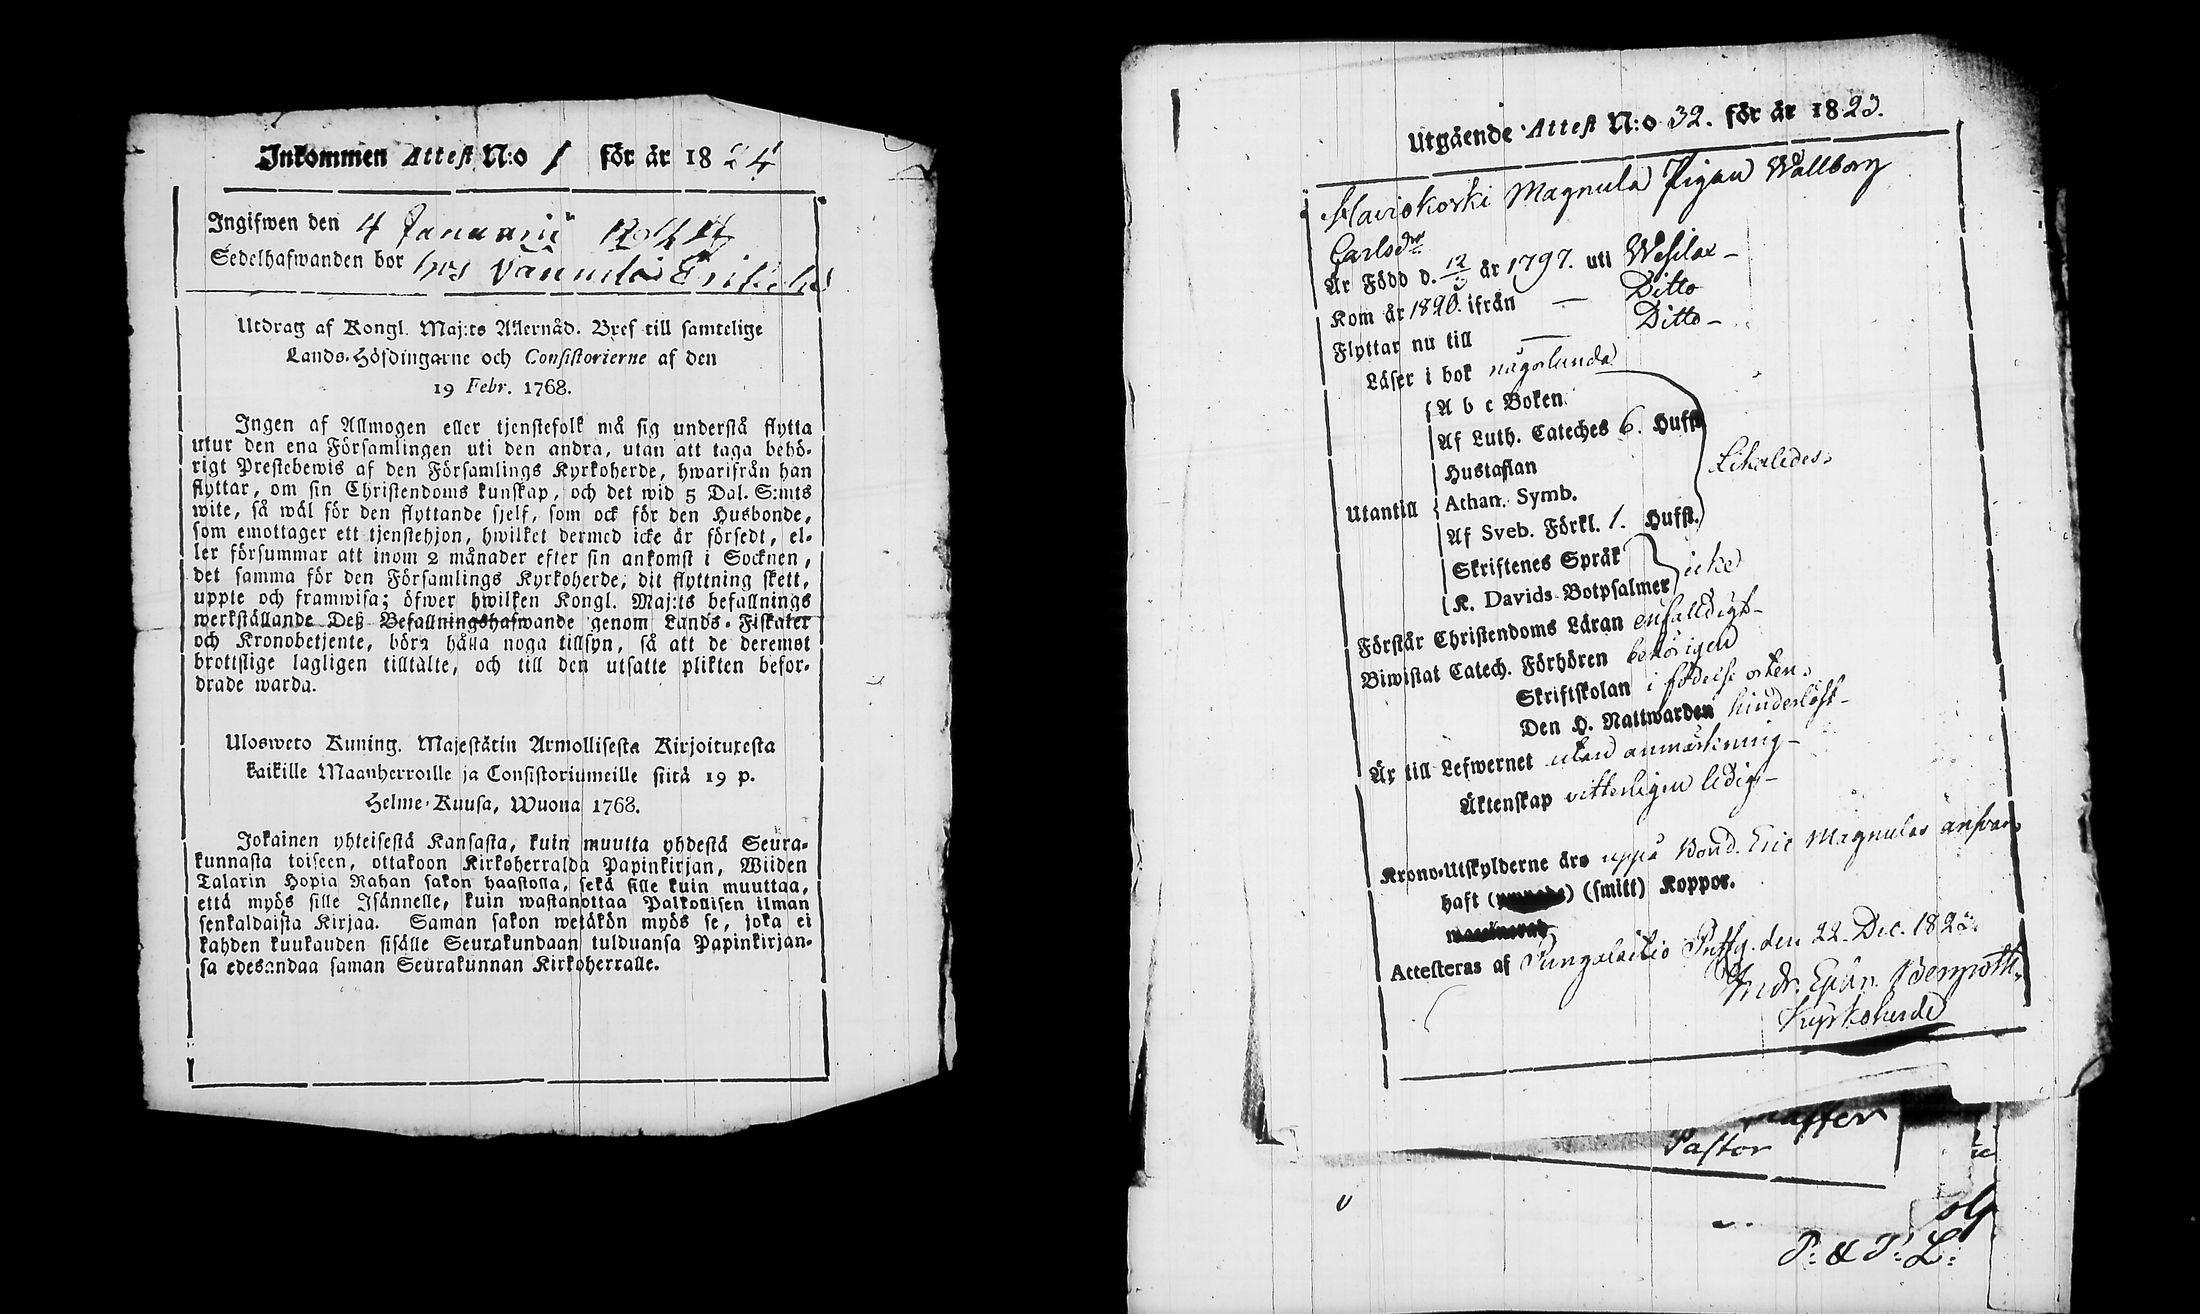 Inkommen Attest N:o 1 för år 1824
Ingifwen den 4 Januarii
Sedelhafwanden bor hos
Utdrag af Kongl. Maj:ts Allernåd. Bref till samtelige
Lands-Höfdingarne och Consistorierne af den
19 Febr. 1768.
Ingen af Allmogen eller tjenstefolk må sig understå flytta
utur den ena Församlingen uti den andra, utan att taga behö-
rigt Prestebewis af den Församlings Kyrkoherde, hwarifrån han
flyttar, om sin Christendoms kunskap, och det wid 5 Dal. S:mts
wite, så wäl för den flyttande sjelf, som ock för den Husbonde,
som emottager ett tjenstehjon, hwilket dermed icke är försedt, el-
ler försummar att inom 2 månader efter sin ankomst i Socknen,
det samma för den Församlings Kyrkoherde, dit flyttning skett,
uppte och framwisa; öfwer hwilken Kongl. Maj:ts befallnings
werkställande Deß Befallningshafwande genom Lands-Fiskaler
och Kronobetjente, böra hålla noga tillsyn, så att de deremot
brottslige lagligen tilltalte, och till den utsatte plikten befor-
drade warda.
Ulosweto Kuning. Majestätin Armollisesta Kirjoituxesta
kaikille Maanherroille ja Consistoriumeille siitä 19 p.
Helme-Kuusa, Wuona 1768.
Jokainen yhteisestä Kansasta, kuin muutta yhdestä Seura-
kunnasta toiseen, ottakoon Kirkoherralda Papinkirjan, Wiiden
Talarin Hopia Rahan sakon haastolla, sekä sille kuin muuttaa,
että myös sille Isännelle, kuin wastanottaa Palkollisen ilman
senkaldaista Kirjaa. Saman sakon wetäkön myös se, joka ei
kahden kuukauden sisälle Seurakundaan tulduansa Papinkirjan-
sa edesandaa saman Seurakunnan Kirkoherralle.
Utgående Attest N:o 32. för år 1823.
Haviokoski Magnula Pigan Wallborg
Carlsdr
Är Född d. 12/3 år 1797. uti Wesilax -
Kom år 1820. ifrån — Ditto
Flyttar nu till — Ditto -
Läser i bok någorlunda
A b c Boken
Af Luth. Cateches 6. Hufst.
Hustaflan
Likaledes.
Utantill Athan. Symb.
Af Sveb. Förkl. 1. Hufst.
Skriftenes Språk
icke
K. Davids Botpsalmer
Förstår Christendoms Läran enfalldigt -
Biwistat Catech. Förhören behörigen
Skriftskolan i födelse orten.
Den H. Nattwarden hinderlöst -
Är till Lefwernet utan anmärkning -
Äktenskap vitterligen ledig -
Krono-Utskylderne äro uppå Bond. Eric Magnulas answar,
haft (smitt) Koppor.
Attesteras af Pungalaitio Prstg. den 22. Dec. 1823.
Andr. Ephr. Bergroth.
Kyrkoherde
Pastor
P: & P: L: